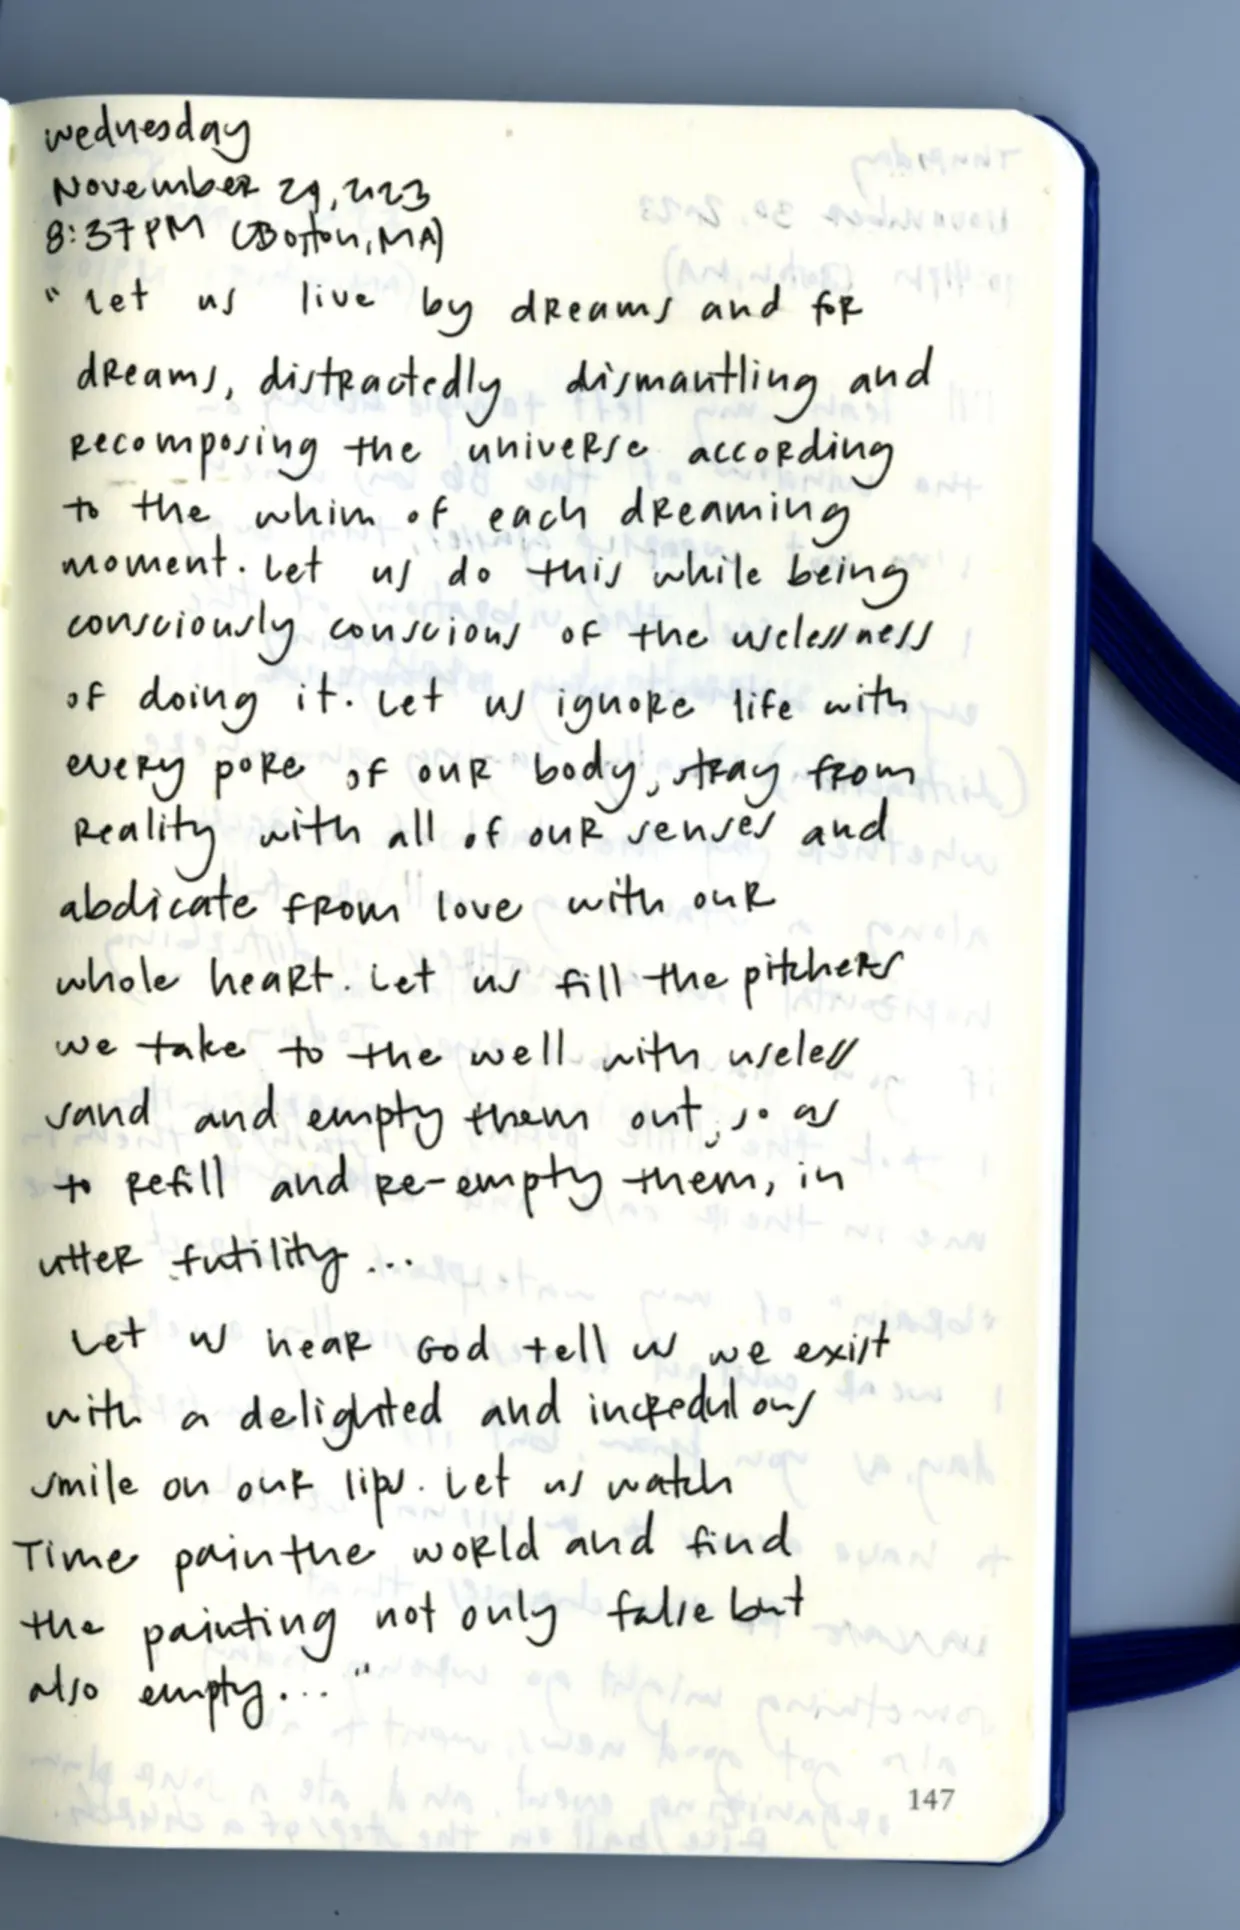 wednesday
November 29, 2023
8:37PM (Boston, MA)
" Let us live by dreams and for
dreams, distractedly dismantling and
recomposing the universe according
to the whim of each dreaming
moment. Let us do this while being
consciously conscious of the uselessness
of doing it. Let us ignore life with
every pore of our body, stray from
reality with all of our senses and
abdicate from love with our
whole heart. Let us fill the pitchers
we take to the well with useless
sand and empty them out, so as
to refill and re-empty them, in
utter futility...
Let us hear God tell us we exist
with a delighted and incredulous
smile on our lips. Let us watch
Time pain the world and find
the painting not only false but
also empty... "
147